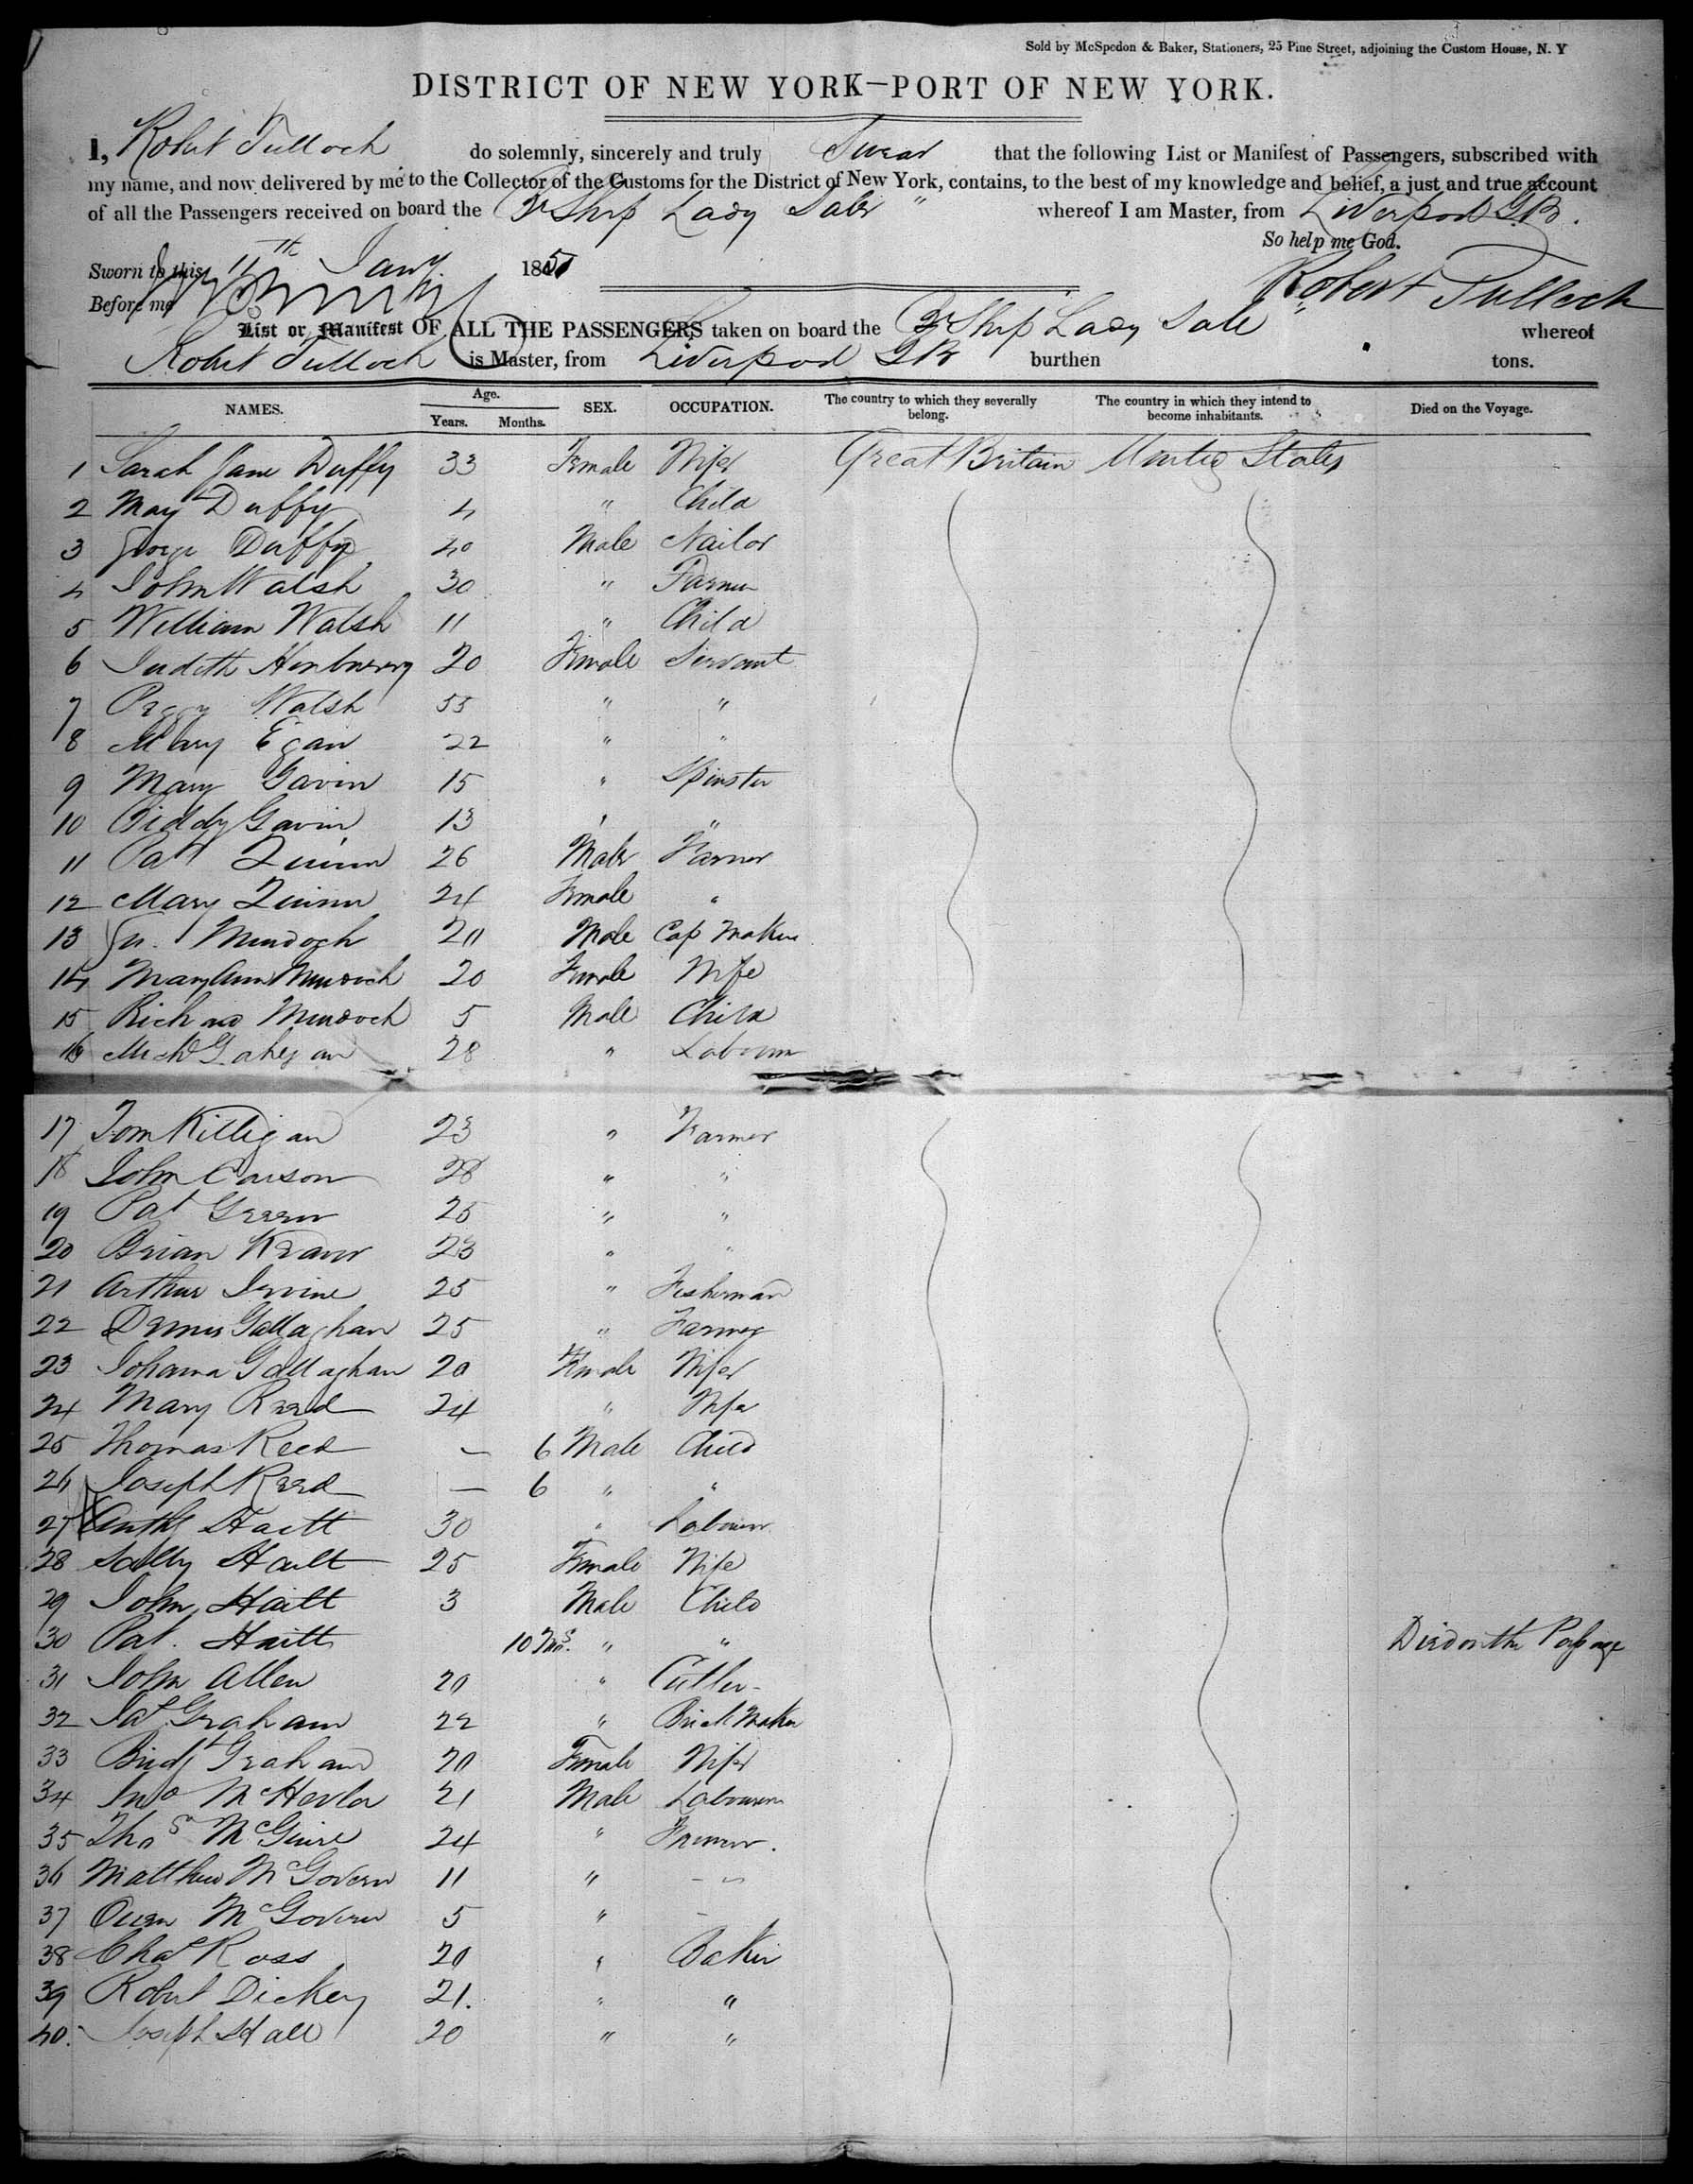 Sold by McSpedon & Baker, Stationers, 25 Pine Street, adjoining the Custom House, N. Y
DISTRICT OF NEW YORK—PORT OF NEW YORK.
I, Robert Tulloch do solemnly, sincerely and truly Swear that the following List or Manifest of Passengers, subscribed with
my name, and now delivered by me to the Collector of the Customs for the District of New York, contains, to the best of my knowledge and belief, a just and true account
of all the Passengers received on board the Br Ship Lady Sale whereof I am Master, from Liverpool GB.
So help me God.
Sworn to this 11th Jany. 1851
Robert Tulloch
Before me
List or Manifest OF ALL THE PASSENGERS taken on board the Br Ship Lady Sale whereof
Robert Tulloch is Master, from Liverpool GB burthen tons.
NAMES. Age. Years. Months. SEX. OCCUPATION. The country to which they severally belong. The country in which they intend to become inhabitants. Died on the Voyage.
1 Sarah Jane Duffy 33 Female Wife Great Britain United States
2 Mary Duffy 4 " Child
3 George Duffy 40 Male Nailor
4 John Walsh 30 " Farmer
5 William Walsh 11 " Child
6 Judith 20 Female Servant
7 Peggy Walsh 55 " "
8 Mary Egan 22 " "
9 Mary Gavin 15 " Spinster
10 Biddy Gavin 13 " "
11 Pat Quinn 26 Male Farmer
12 Mary Quinn 24 Female "
13 Murdoch 20 Male Cap Maker
14 Mary Ann Murdoch 20 Female Wife
15 Richard Murdoch 5 Male Child
16 Michl Gahegan 28 " Labourer
17 Tom Killigan 23 " Farmer
18 John Carson 28 " "
19 Pat Green 25 " "
20 Brian 23 " "
21 Arthur Irvine 25 " Fisherman
22 Dennis Gallaghan 25 " Farmer
23 Johanna Gallaghan 20 Female Wife
24 Mary Reed 24 " Wife
25 Thomas Reed — 6 Male Child
26 Joseph Reed — 6 " "
27 Haitt 30 " Labourer
28 Sally Haitt 25 Female Wife
29 John Haitt 3 Male Child
30 Pat. Haitt 10 Mos. " " Died on the Passage
31 John Allen 20 " Cutler
32 Jas Graham 22 " Brick Maker
33 Bridt Graham 20 Female Wife
34 Jno 21 Male Labourer
35 Thos McGuire 24 " Farmer.
36 Matthew McGovern 11 " - "
37 Owen McGovern 5 " -
38 Chas Ross 20 " Baker
39 Robert Dickey 21. " "
40. Joseph Hall 20 " "